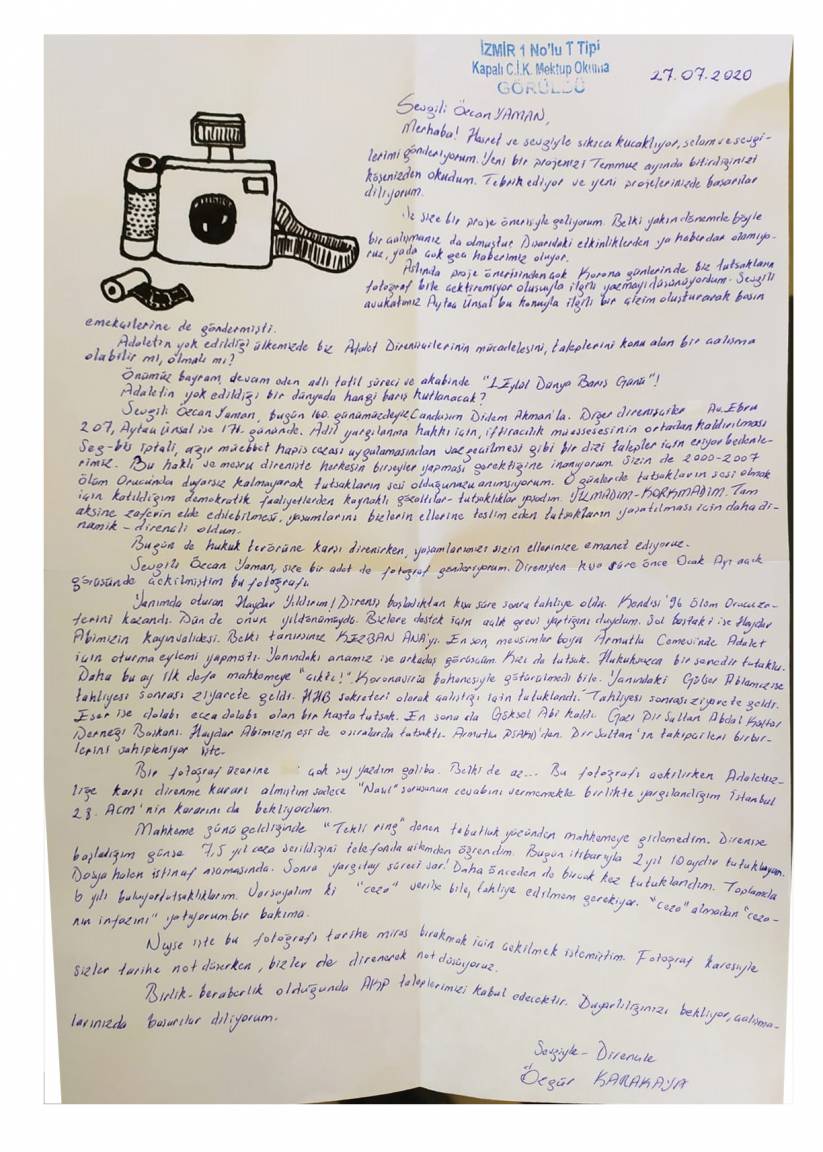 İZMİR 1 No'lu T Tipi
Kapalı C.İ.K. Mektup Okuma
GÖRÜLDÜ
27.07.2020
Sevgili Özcan YAMAN,
Merhaba! Hasret ve sevgiyle sıkıca kucaklıyor, selam ve sevgi-
lerimi gönderiyorum. Yeni bir projenizi Temmuz ayında bitirdiğinizi
köşenizden okudum. Tebrik ediyor ve yeni projelerinizde başarılar
diliyorum.
size bir proje önerisiyle geliyorum. Belki yakın dönemde böyle
bir çalışmanız da olmuştur. Dışarıdaki etkinliklerden ya haberdar olamıyo-
ruz, yada çok geç haberimiz oluyor.
Aslında proje önerisinden çok Korona günlerinde biz tutsakların
fotoğraf bile çektiremiyor oluşuyla ilgili yazmayı düşünüyordum. Sevgili
avukatımız Aytaç Ünsal bu konuyla ilgili bir çizim oluşturarak basın
emekçilerine de göndermişti.
Adaletin yok edildiği ülkemizde biz Adalet Direnişçilerinin mücadelesini, taleplerini konu alan bir çalışma
olabilir mi, olmalı mı?
Önümüz bayram, devam eden adli tatil süreci ve akabinde "1 Eylül Dünya Barış Günü"!
Adaletin yok edildiği bir dünyada hangi barış kutlanacak?
Sevgili Özcan Yaman, bugün 160. günümüzdeyiz Candaşım Didem Akman'la. Diğer direnişçiler Av. Ebru
207, Aytaç Ünsal ise 176. gününde. Adil yargılanma hakkı için, iftiracılık müessesesinin ortadan kaldırılması
Seg-bis iptali, ağır müebbet hapis cezası uygulamasından vazgeçilmesi gibi bir dizi talepler için eriyor bedenle-
rimiz. Bu haklı ve meşru direnişte herkesin birşeyler yapması gerektiğine inanıyorum. Sizin de 2000-2007
Ölüm Orucunda duyarsız kalmayarak tutsakların sesi olduğunuzu anımsıyorum. O günlerde tutsakların sesi olmak
için katıldığım demokratik faaliyetlerden kaynaklı gözaltılar-tutsaklıklar yaşadım. YILMADIM-KORKMADIM. Tam
aksine zaferin elde edilebilmesi, yaşamlarını bizlerin ellerine teslim eden tutsakların yaşatılması için daha di-
namik-dirençli oldum.
Bugün de hukuk terörüne karşı direnirken, yaşamlarımızı sizin ellerinize emanet ediyoruz.
Sevgili Özcan Yaman, size bir adet de fotoğraf gönderiyorum. Direnişten kısa süre önce Ocak Ayı açık
görüşünde çekilmiştim bu fotoğrafı.
Yanımda oturan Haydar Yıldırım! Direniş başladıktan kısa süre sonra tahliye oldu. Kendisi '96 Ölüm Orucu za-
ferini kazandı. Dün de onun yıldönümüydü. Bizlere destek için açlık grevi yaptığını duydum. Sol baştaki ise Haydar
Abimizin kayınvalidesi. Belki tanırsınız KEZBAN ANA'yı. En son, mevsimler boyu Armutlu Cemevinde Adalet
için oturma eylemi yapmıştı. Yanındaki anamız ise arkadaş görüşçüm. Kızı da tutsak. Hukuksuzca bir senedir tutuklu.
Daha bu ay ilk defa mahkemeye "çıktı!". Koronavirüs bahanesiyle götürülmedi bile. Yanındaki Gülser Ablamız ise
tahliyesi sonrası ziyarete geldi. HHB sekreteri olarak çalıştığı için tutuklandı. Tahliyesi sonrası ziyarete geldi.
Eser ise dolabı ecza dolabı olan bir hasta tutsak. En sona da Göksel Abi kaldı. Gazi Pir Sultan Abdal Kültür
Derneği Başkanı. Haydar Abimizin eşi de o sıralarda tutsaktı. Armutlu PSAKD'dan. Pir Sultan'ın takipçileri birbir-
lerini sahipleniyor işte.
Bir fotoğraf üzerine çok şey yazdım galiba. Belki de az... Bu fotoğrafı çekilirken Adaletsiz-
liğe karşı direnme kararı almıştım sadece "Nasıl" sorusunun cevabını vermemekle birlikte yargılandığım İstanbul
28. ACM'nin kararını da bekliyordum.
Mahkeme günü geldiğinde "Tekli ring" denen tabutluk yüzünden mahkemeye gidemedim. Direnişe
başladığım günse 7,5 yıl ceza verildiğini telefonda ailemden öğrendim. Bugün itibarıyla 2 yıl 10 aydır tutukluyum.
Dosya halen istinaf aşamasında. Sonra yargıtay süreci var! Daha önceden de birçok kez tutuklandım. Toplamda
6 yılı buluyor tutsaklıklarım. Varsayalım ki "ceza" verilse bile, tahliye edilmem gerekiyor. "ceza" almadan "ceza-
nın infazını" yatıyorum bir bakıma.
Neyse işte bu fotoğrafı tarihe miras bırakmak için çekilmek istemiştim. Fotoğraf karesiyle
sizler tarihe not düşerken, bizler de direnerek not düşüyoruz.
Birlik-beraberlik olduğunda AKP taleplerimizi kabul edecektir. Duyarlılığınızı bekliyor, çalışma-
larınızda başarılar diliyorum.
Sevgiyle-Dirençle
Özgür KARAKAYA